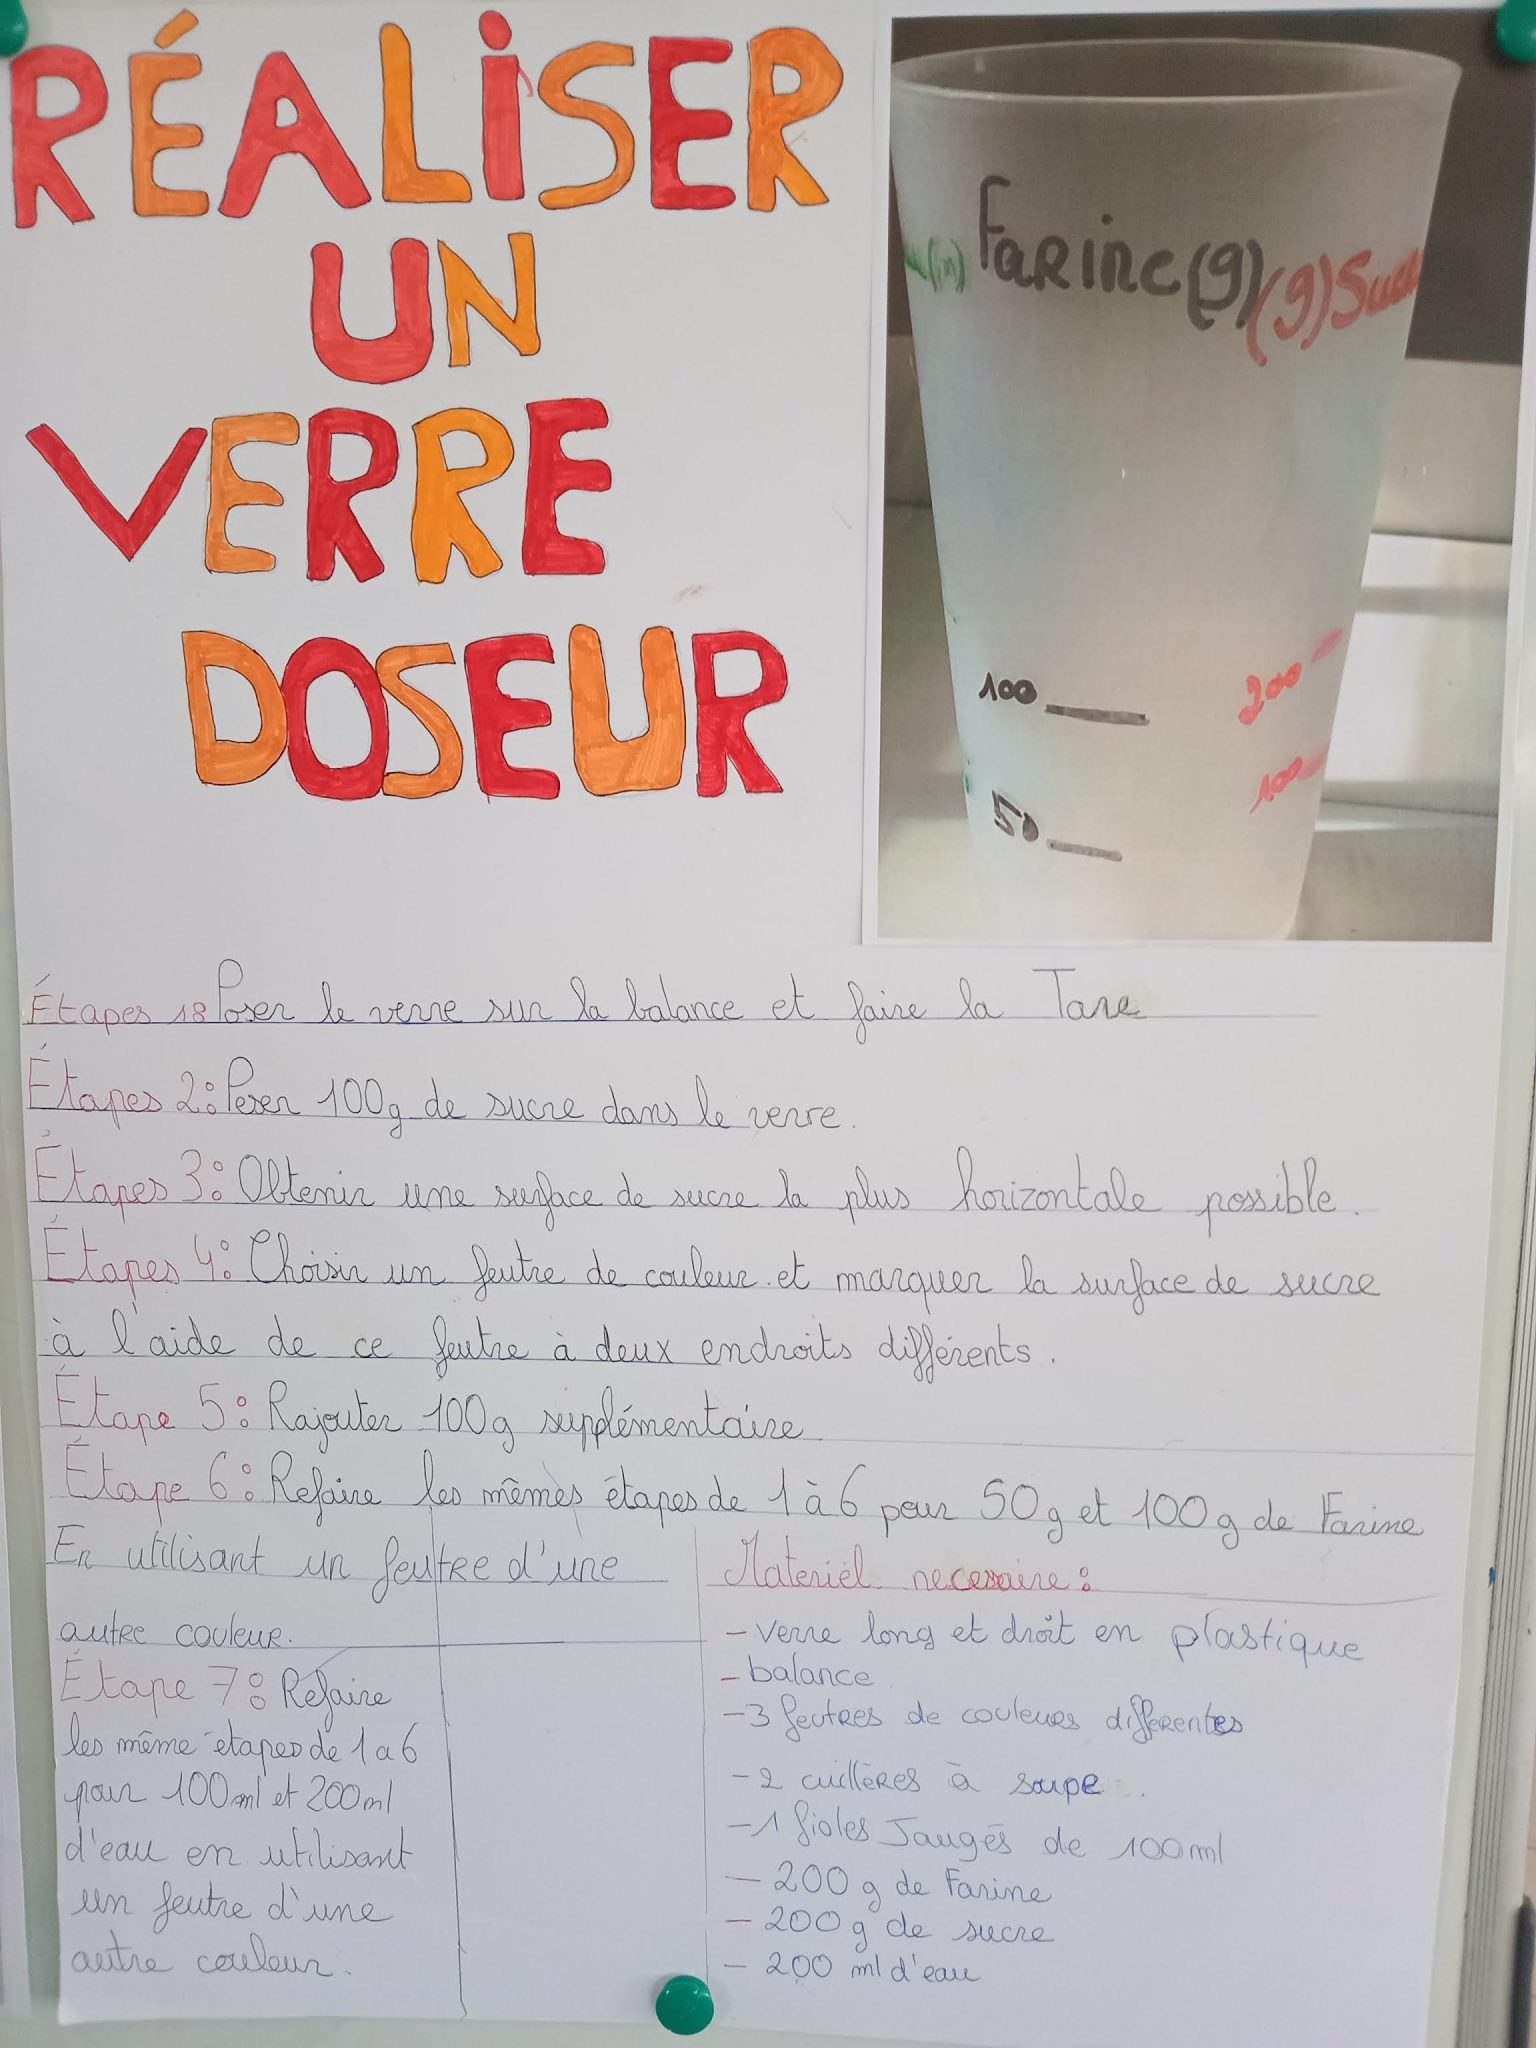 RÉALISER
UN
VERRE
DOSEUR
Farine(g)
(g)Sucre
100
200
100
50
Étapes 1: Poser le verre sur la balance et faire la Tare
Étapes 2: Peser 100g de sucre dans le verre.
Étapes 3: Obtenir une surface de sucre la plus horizontale possible.
Étapes 4: Choisir un feutre de couleur et marquer la surface de sucre
à l'aide de ce feutre à deux endroits différents.
Étape 5: Rajouter 100g supplémentaire
Étape 6: Refaire les mêmes étapes de 1 à 6 pour 50g et 100g de Farine
En utilisant un feutre d'une
autre couleur.
Étape 7: Refaire
les même étapes de 1 a 6
pour 100ml et 200ml
d'eau en utilisant
un feutre d'une
autre couleur.
Materiel necesaire:
- verre long et droit en plastique
- balance
- 3 feutres de couleurs differentes
- 2 cuillères à soupe.
- 1 fioles Jaugés de 100ml
- 200g de Farine
- 200g de sucre
- 200 ml d'eau